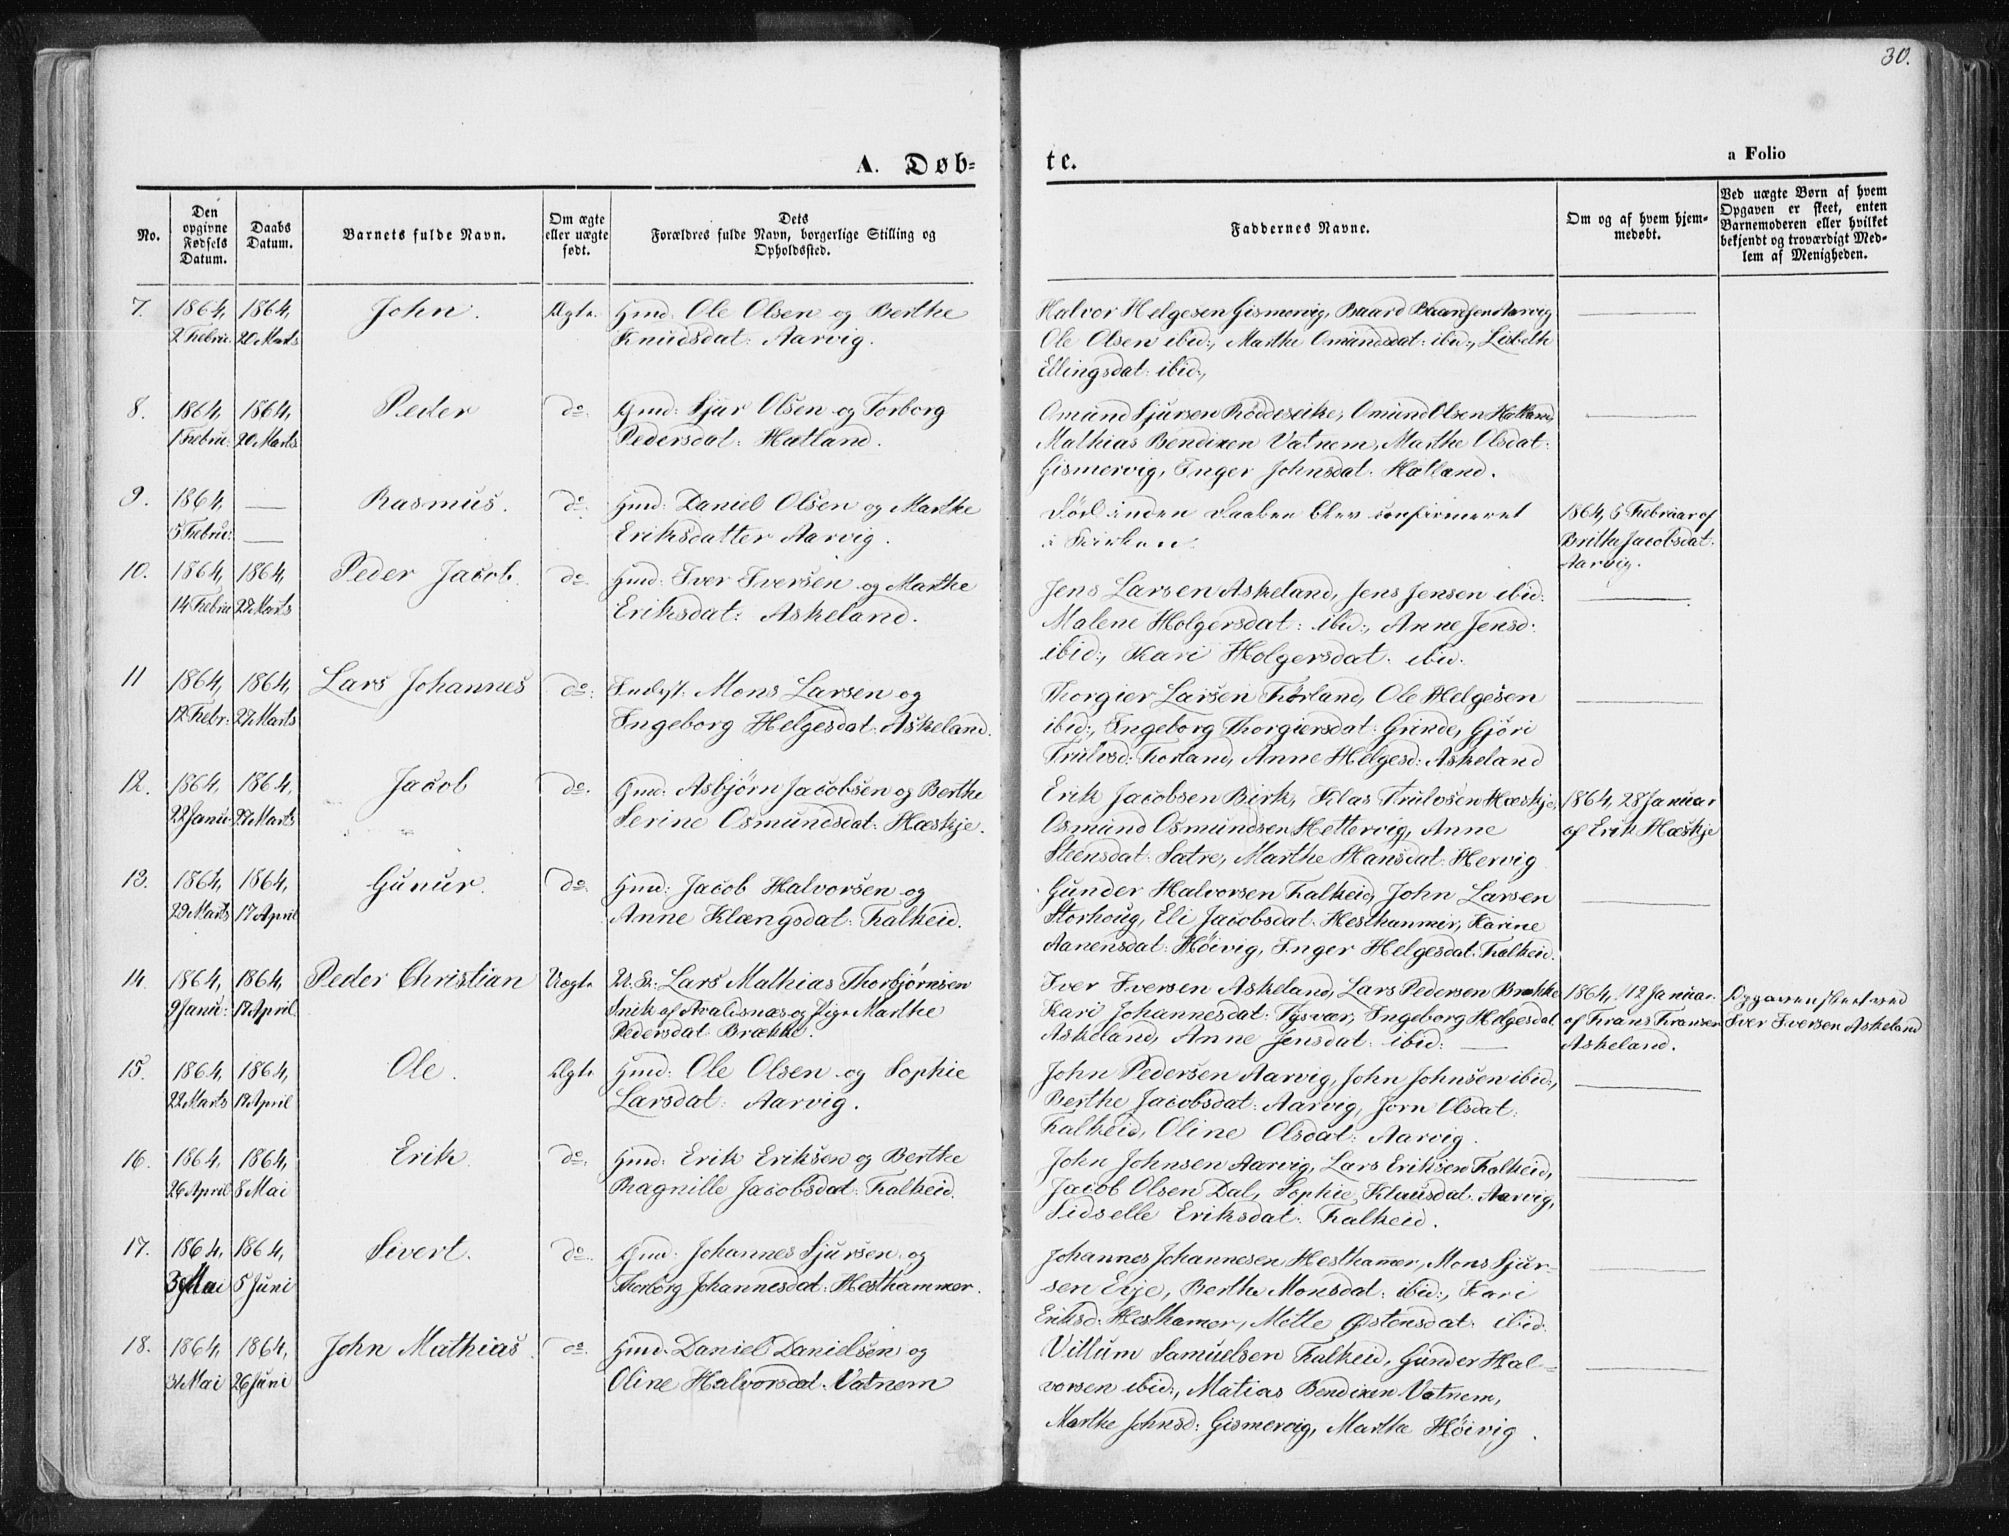 30.
A. Døb-
te.
a Folio
No.
Den opgivne Fødsels Datum.
Daabs Datum.
Barnets fulde Navn.
Om ægte eller uægte født.
Dets Forældres fulde Navn, borgerlige Stilling og Opholdssted.
Faddernes Navne.
Om og af hvem hjemmedøbt.
Ved uægte Børn af hvem Opgaven er skeet, enten Barnemoderen eller hvilket bekjendt og troværdigt Medlem af Menigheden.
7. 1864, 1864, John. Ægte. Gmd. Ole Olsen og Berthe
2 Febru: 20 Marts Knudsdat: Aarvig.
Halvor Helgesen Gismervig, Baard Baardsen Aarvig
Ole Olsen ibid:, Marthe Omundsdat: ibid:, Lisbeth
Ellingsdat: ibid:,
8. 1864, 1864, Peder do. Gmd: Sjur Olsen og Torborg
1 Febru: 20 Marts Pedersdat: Hatland.
Omund Sjursen Röddeseike, Omund Olsen Hatland,
Mathias Bendixen Vatnem, Marthe Olsdat:
Gismervig, Inger Johnsdat: Hatland.
9. 1864, — Rasmus. do. Gmd: Daniel Olsen og Marthe
5 Febru: — Eriksdatter Aarvig.
Död inden Daaben blev confirmeret
i Kirken.
1864, 5 Februar af
Brithe Jacobsdat:
Aarvig.
10. 1864, 1864, Peder Jacob. do. Gmd: Iver Iversen og Marthe
14 Febru 28 Marts Eriksdat: Askeland.
Jens Larsen Askeland, Jens Jensen ibid:
Malene Holgersdat: ibid:, Anne Jensd:
ibid:, Kari Holgersdat: ibid:
11 1864, 1864, Lars Johannes do: Indst: Mons Larsen og
12 Febr: 27 Marts Ingeborg Helgesdat: Askeland.
Thorgier Larsen Förland, Ole Helgesen
ibid:, Ingeborg Thorgiersdat: Grinde, Gjöri
Trulvsd: Förland, Anne Helgesd: Askeland
12. 1864, 1864, Jacob do. Gmd: Asbjörn Jacobsen og Berthe
22 Janu: 28 Marts Serine Osmundsdat: Hæskje.
Erik Jacobsen Birk, Klas Trulvsen Hæskje,
Osmund Osmundsen Hettervig, Anne
Steensdat: Sætre, Marthe Hansdat: Hervig
1864, 28 Januar
af Erik Hæskje
13. 1864, 1864, Gunur. do. Gmd: Jacob Halvorsen og
29 Marts 17 April Anne Klængsdat: Falkeid.
Gunder Halvorsen Falkeid, John Larsen
Storhoug, Eli Jacobsdat: Hesthammer, Karine
Aanensdat: Höivig, Inger Helgesdat: Falkeid.
14. 1864, 1864, Peder Christian Uægte U. K: Lars Mathias Thorbjörnsen
9 Janu: 17 April Snik af Avaldsnæs og Pige Marthe
Pedersdat: Brække.
Iver Iversen Askeland, Lars Pedersen Brække
Kari Johannesdat: Tysvær, Ingeborg Helgesdat
Askeland, Anne Jensdat: ibid:
1864, 12 Januar
af Frans Fransen
Askeland.
Opgaven skeet ved
Iver Iversen Askeland
15. 1864, 1864, Ole. Ægte Gmd: Ole Olsen og Sophie
22 Marts 17 April Larsdat: Aarvig.
John Pedersen Aarvig, John Johnsen ibid:,
Berthe Jacobsdat: Aarvig, Jorn Olsdat:
Falkeid, Oline Olsdat: Aarvig.
16. 1864, 1864, Erik do. Gmd: Erik Eriksen og Berthe
26 April 8 Mai Ragnille Jacobsdat: Falkeid.
John Johnsen Aarvig, Lars Eriksen Falkeid,
Jacob Olsen Dal, Sophie Klausdat: Aarvig,
Sidselle Eriksdat: Falkeid.
17. 1864, 1864, Sivert. do. Gmd: Johannes Sjursen og
Mai 5 Juni Thorborg Johannesdat: Hesthammer.
Johannes Johannesen Hesthammer, Mons Sjur-
sen Eije, Berthe Monsdat: ibid:, Kari
Eriksd: Hesthamer, Mette Östensdat: ibid:
18. 1864, 1864, John Mathias. do. Gmd. Daniel Danielsen og
31 Mai 26 Juni Oline Halvorsdat: Vatnem
Villum Samuelsen Falkeid, Gunder Hal-
vorsen ibid:, Matias Bendixen Vatnem,
Marthe Johnsd: Gismervig, Martha Höivig.